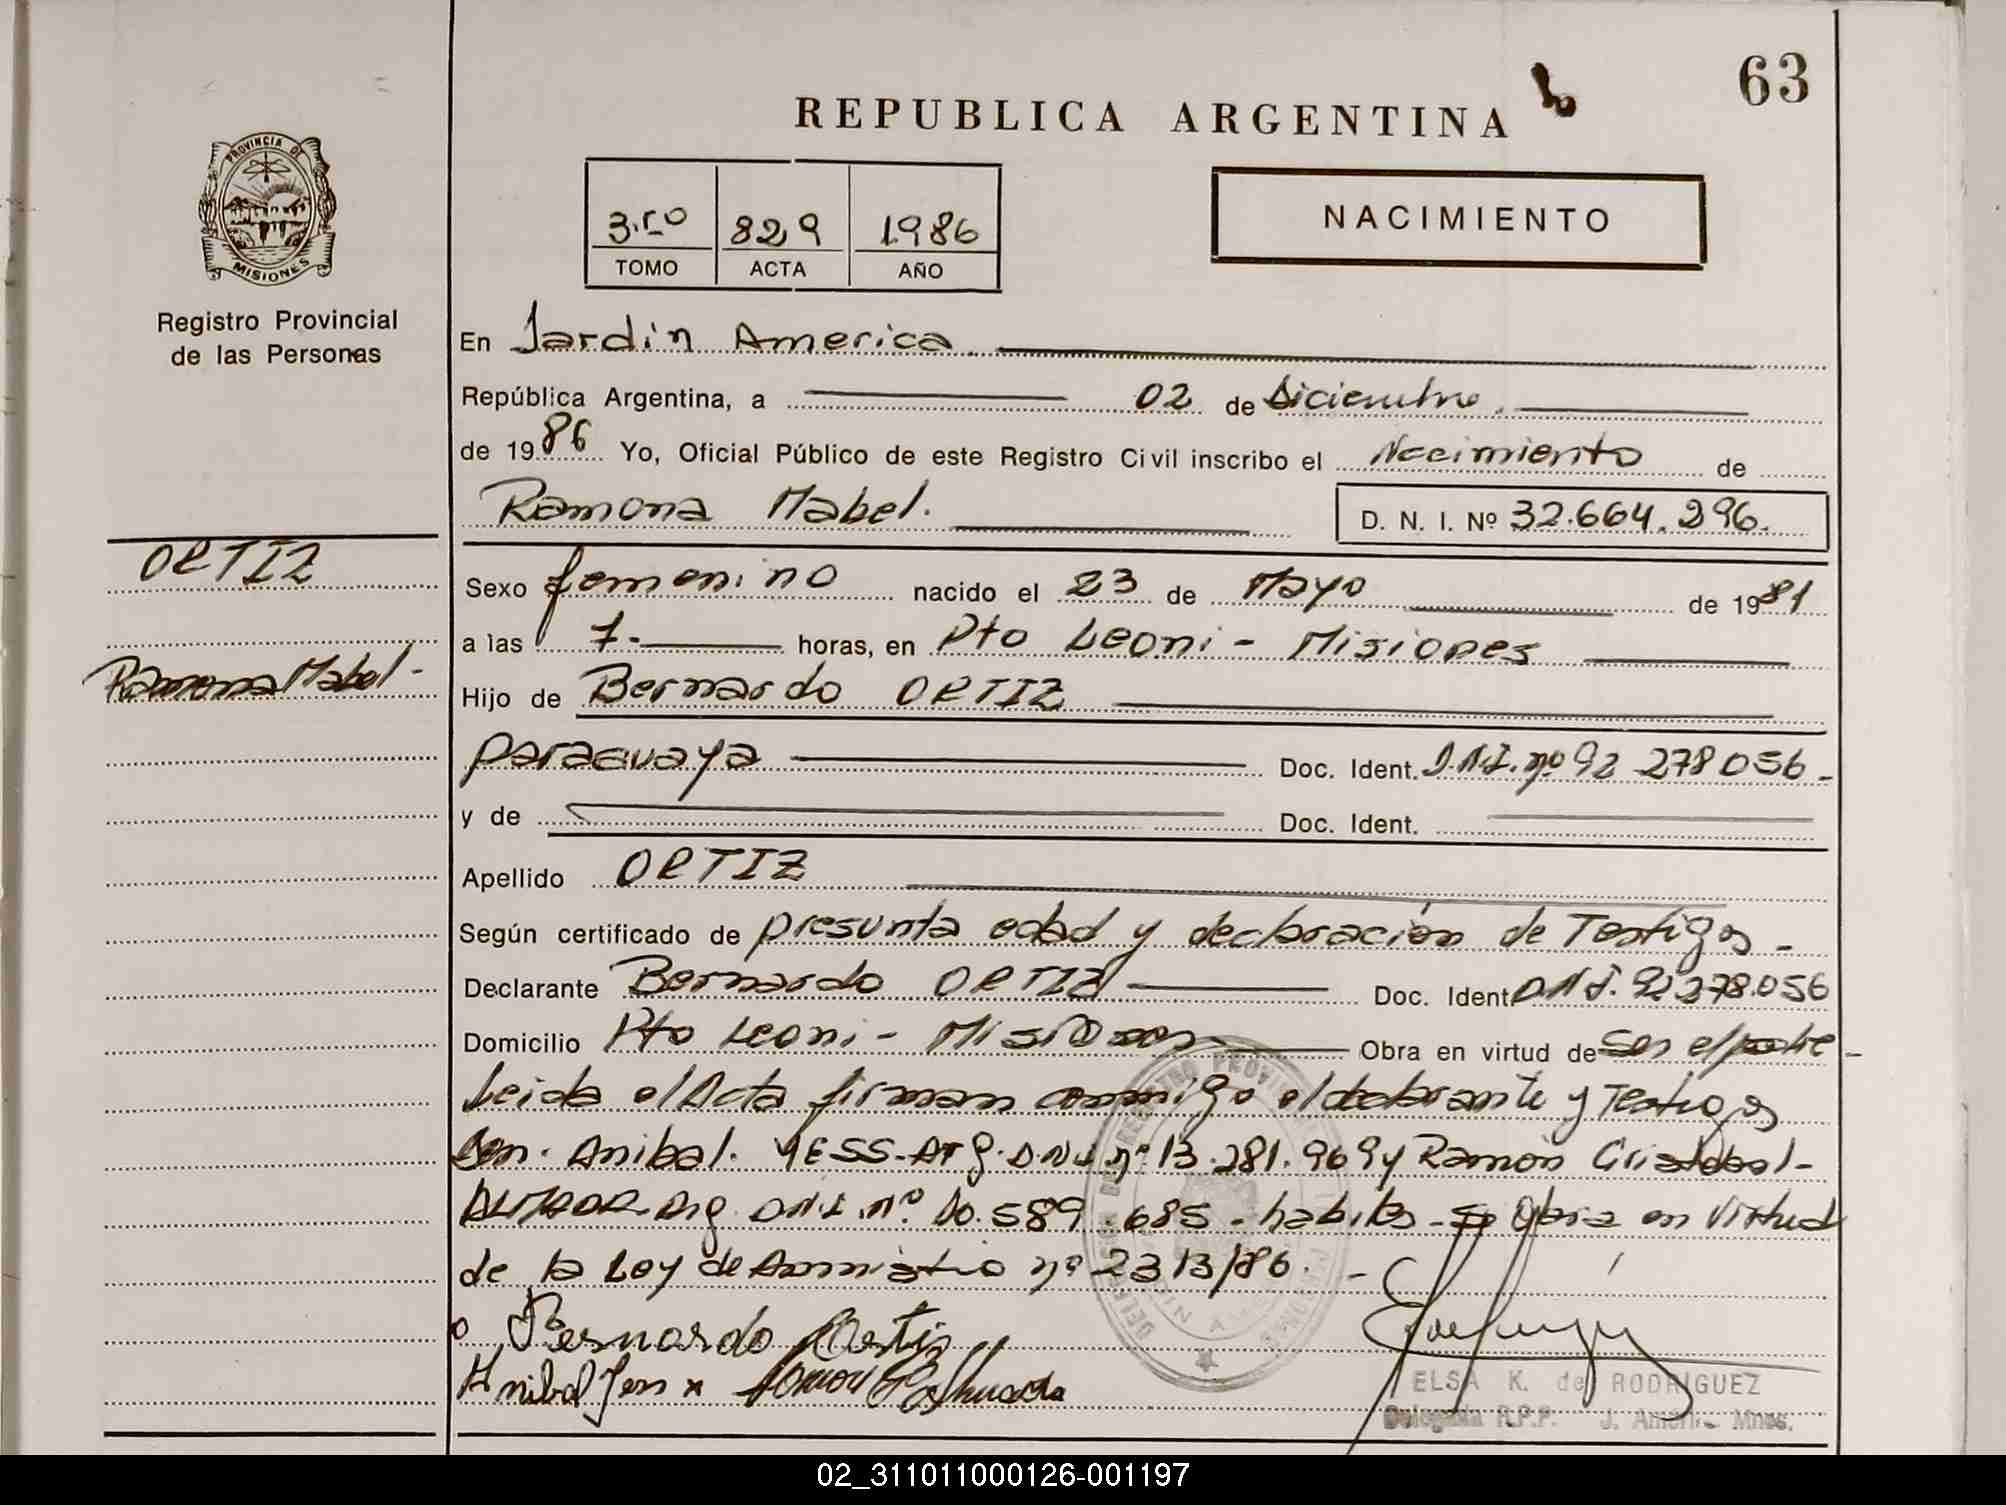 63
REPUBLICA ARGENTINA
PROVINCIA DE
MISIONES
Registro Provincial
de las Personas
3.ro 829 1986
TOMO ACTA AÑO
NACIMIENTO
En Jardin America
República Argentina, a 02 de Diciembre.
de 1986 Yo, Oficial Público de este Registro Civil inscribo el Nacimiento de
Ramona Mabel.
D. N. I. Nº 32.664.296.
ORTIZ
Ramona Mabel -
Sexo femenino nacido el 23 de Mayo de 1981
a las 7.- horas, en Pto Leoni - Misiones
Hijo de Bernardo ORTIZ
Paraguaya Doc. Ident. D.N.I. nº 92 278056 -
y de Doc. Ident.
Apellido ORTIZ
Según certificado de presunta edad y declaración de Testigos -
Declarante Bernardo ORTIZ Doc. Ident. D.N.I. 92 278.056
Domicilio Pto Leoni - Misiones Obra en virtud de ser el padre -
Leida el Acta firman conmigo el declarante y Testigos
Anibal. Arg. D.N.I nº 13.281.969 y Ramón Cristobal -
Arg. D.N.I. nº. 10.589.685 - habiles - se obra en virtud
de la Ley de Amnistia nº 2313/86. -
Bernardo Ortiz
Anibal
ELSA K. de RODRIGUEZ
Delegada R.P.P. J. Améri. - Mnes.
02_311011000126-001197